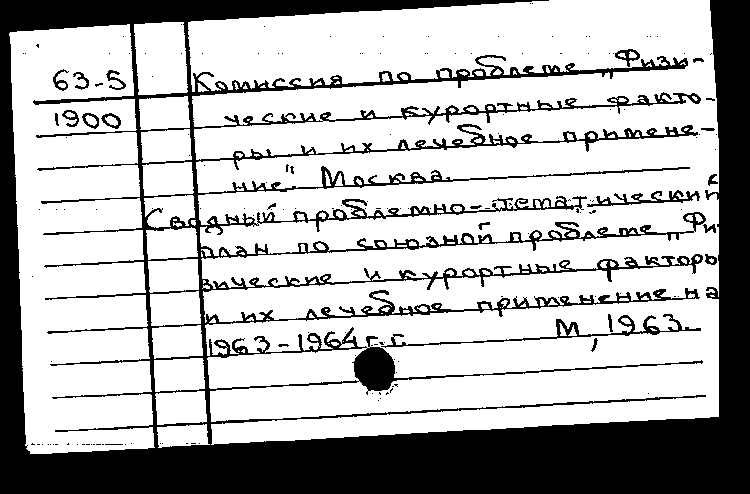 63-5 Комиссия по проблеме „Физи-
1900 ческие и курортные факто-
ры и их лечебное примене-
ние". Москва.
Сводный проблемно-тематический
план по союзной проблеме „Фи-
зические и курортные факторы
и их лечебное применение на
1963-1964 г.г. М, 1963.